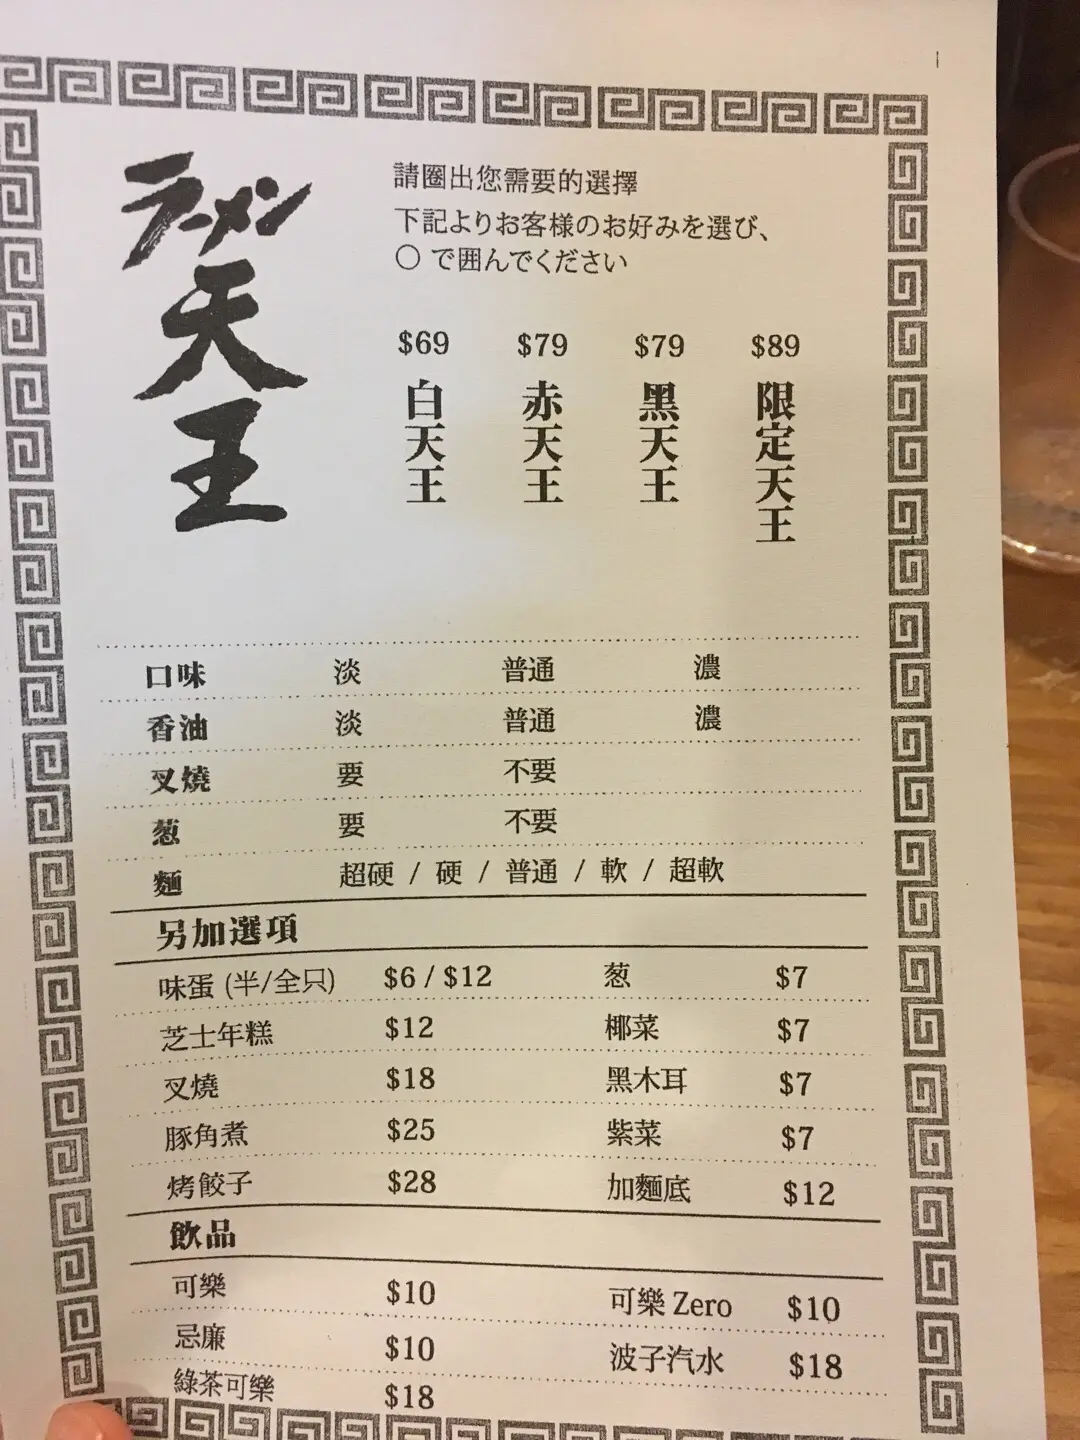 ラーメン
天王
請圈出您需要的選擇
下記よりお客様のお好みを選び、
○で囲んでください
$69 $79 $79 $89
白天王 赤天王 黑天王 限定天王
口味 淡 普通 濃
香油 淡 普通 濃
叉燒 要 不要
葱 要 不要
麵 超硬 / 硬 / 普通 / 軟 / 超軟
另加選項
味蛋 (半/全只) $6 / $12 葱 $7
芝士年糕 $12 椰菜 $7
叉燒 $18 黑木耳 $7
豚角煮 $25 紫菜 $7
烤餃子 $28 加麵底 $12
飲品
可樂 $10 可樂 Zero $10
忌廉 $10 波子汽水 $18
綠茶可樂 $18